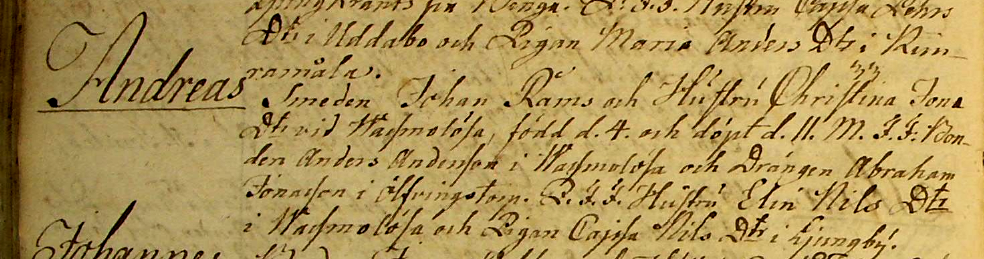 Ljungkrants fr. Wenga. Q. J. J. Hustru Cajsa Lehrs
Dtr i Uddabo och Pigan Maria Anders Dtr i Rum-
ramåla.
Andreas
Smeden Johan Rams och Hustru Christina Jona
Dtr vid Wassmolösa, född d. 4. och döpt d. 11. M. J. J. Bon-
den Anders Anderson i Wassmolösa och Drängen Abraham
Jonasson i Ölfvingstorp. Q. J. J. Hustru Elin Nils Dtr
i Wassmolösa och Pigan Cajsa Nils Dtr i Ljungby.
Johannes